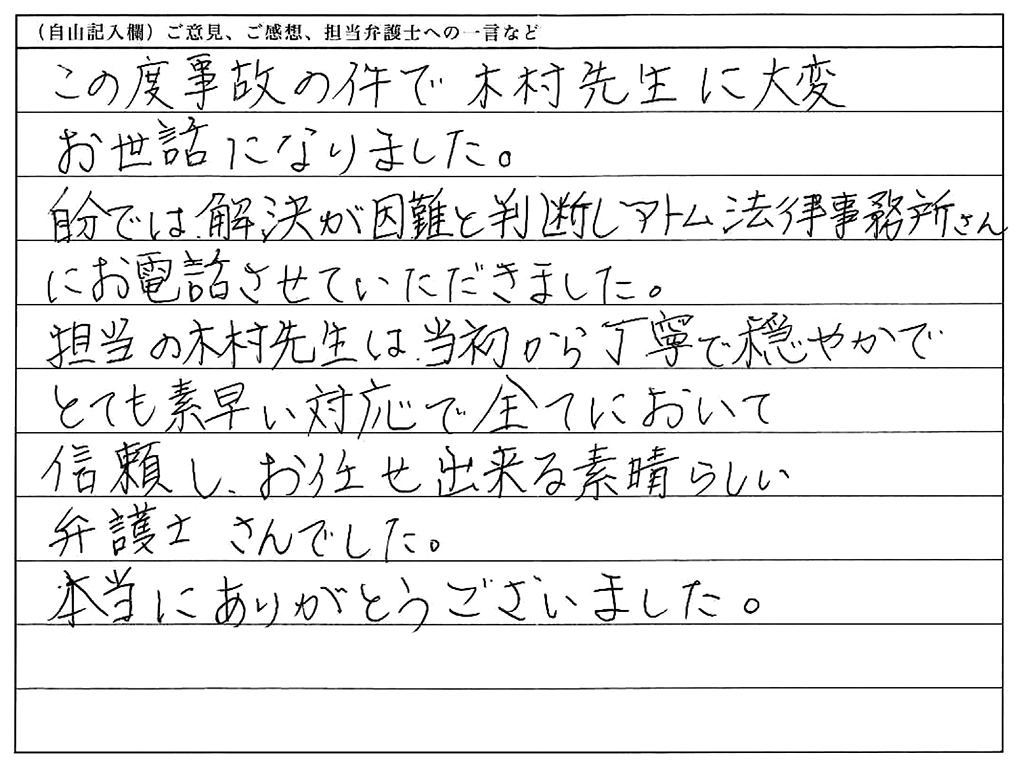 （自由記入欄）ご意見、ご感想、担当弁護士への一言など
この度事故の件で 木村先生に大変
お世話になりました。
自分では解決が困難と判断しアトム法律事務所さん
にお電話させていただきました。
担当の木村先生は、当初から丁寧で穏やかで
とても素早い対応で全てにおいて
信頼し、お任せ出来る素晴らしい
弁護士さんでした。
本当にありがとうございました。